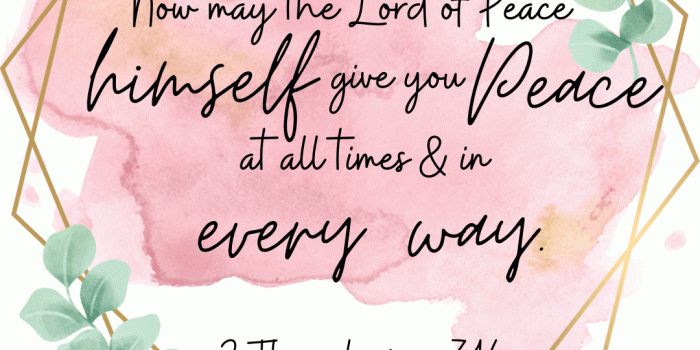 Now may the Lord of Peace
himself give you Peace
at all times & in
every way.